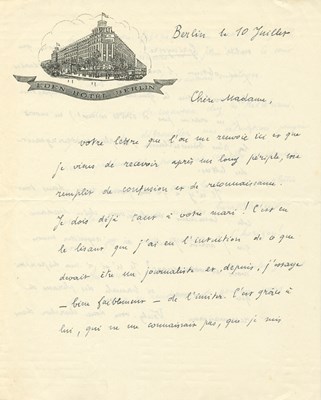 EDEN HÔTEL BERLIN
Berlin le 10 Juillet
Chère Madame,
votre lettre que l'on me renvoie ici et que
je viens de recevoir après un long périple, me
remplit de confusion et de reconnaissance.
Je dois déjà tant à votre mari ! C'est en
le lisant que j'ai eu l'intuition de ce que
devait être un journaliste et, depuis, j'essaye
— bien faiblement — de l'imiter. C'est grâce à
lui, qui ne me connaissait pas, que je suis